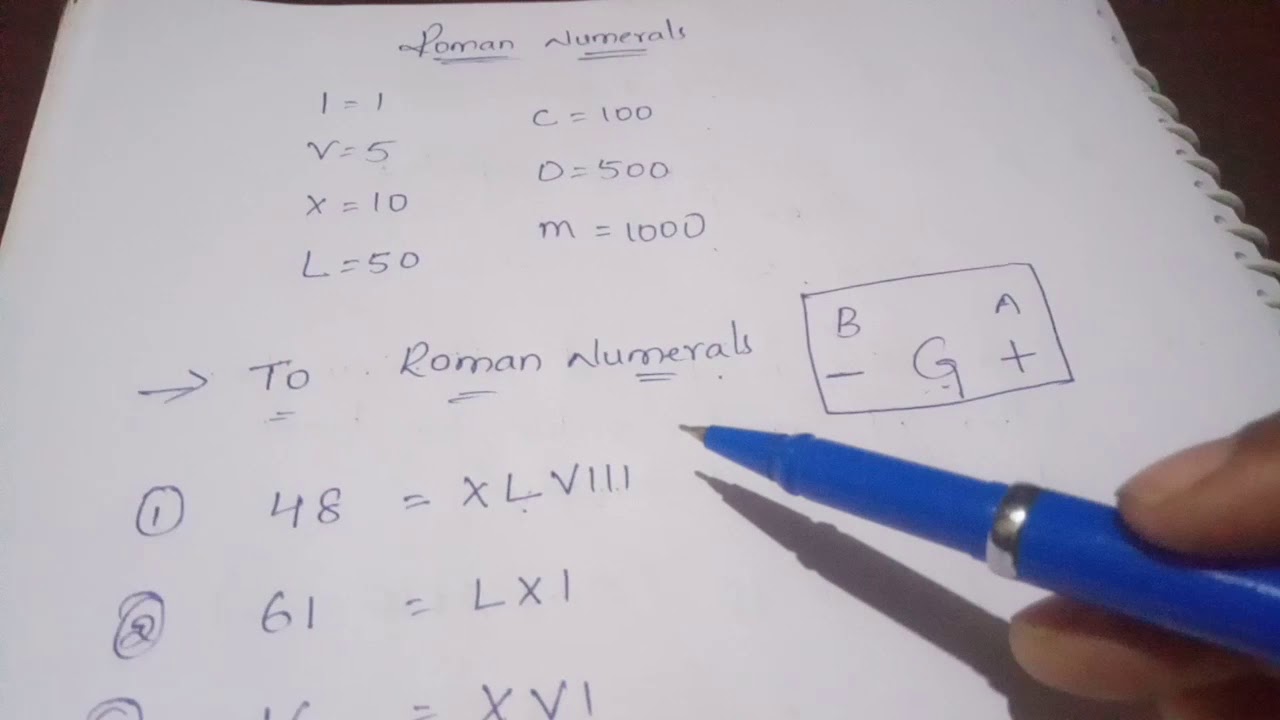 Roman Numerals
I = 1
V = 5
X = 10
L = 50
C = 100
D = 500
m = 1000
→ To Roman Numerals
B A
- G +
① 48 = XLVIII
② 61 = LXI
= XVI